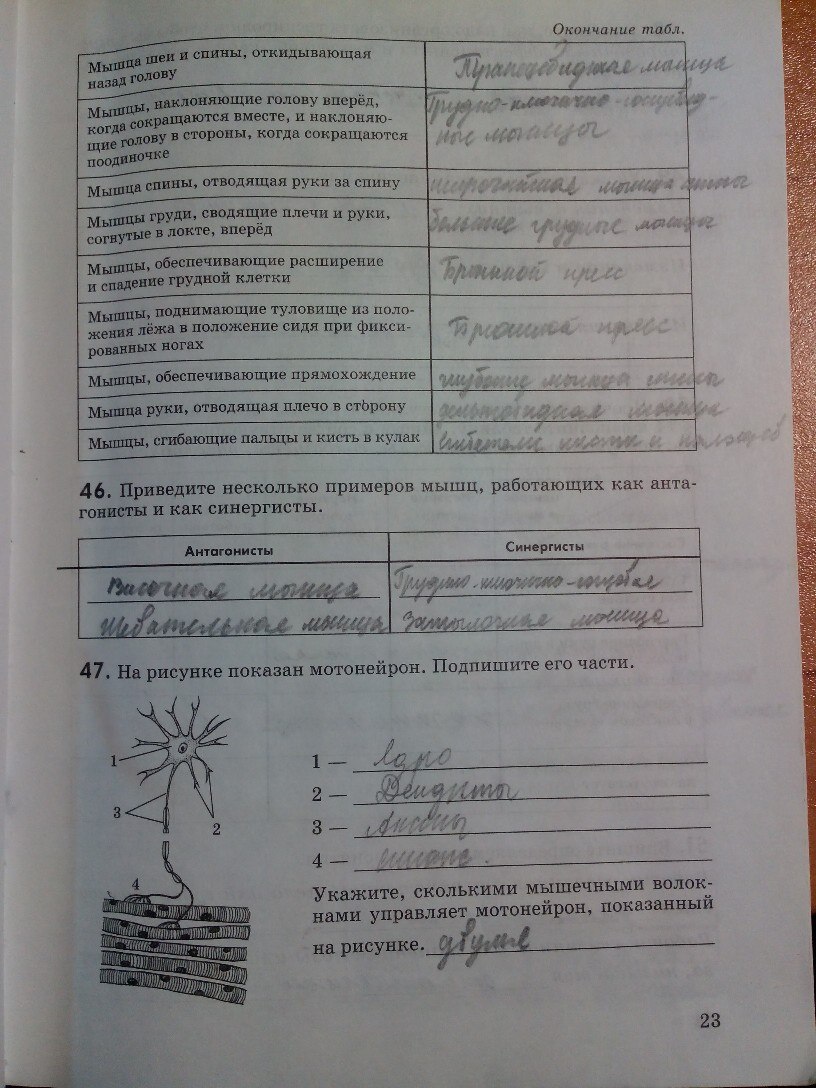 Окончание табл.
Мышца шеи и спины, откидывающая
назад голову
Трапециевидная мышца
Мышцы, наклоняющие голову вперёд,
когда сокращаются вместе, и наклоняю-
щие голову в стороны, когда сокращаются
поодиночке
Грудно-ключично-сосцевид-
ные мышцы
Мышца спины, отводящая руки за спину
широчайшая мышца спины
Мышцы груди, сводящие плечи и руки,
согнутые в локте, вперёд
большие грудные мышцы
Мышцы, обеспечивающие расширение
и спадение грудной клетки
Брюшной пресс
Мышцы, поднимающие туловище из поло-
жения лёжа в положение сидя при фикси-
рованных ногах
Брюшной пресс
Мышцы, обеспечивающие прямохождение
глубокие мышцы спины
Мышца руки, отводящая плечо в сторону
дельтовидная мышца
Мышцы, сгибающие пальцы и кисть в кулак
сгибатели кисти и пальцев
46. Приведите несколько примеров мышц, работающих как анта-
гонисты и как синергисты.
Антагонисты
Синергисты
Височная мышца
Грудино-ключично-
Жевательная мышца
Затылочная мышца
47. На рисунке показан мотонейрон. Подпишите его части.
1
3
2
4
1 — Ядро
2 — Дендриты
3 — Аксоны
4 —
Укажите, сколькими мышечными волок-
нами управляет мотонейрон, показанный
на рисунке. двумя
23